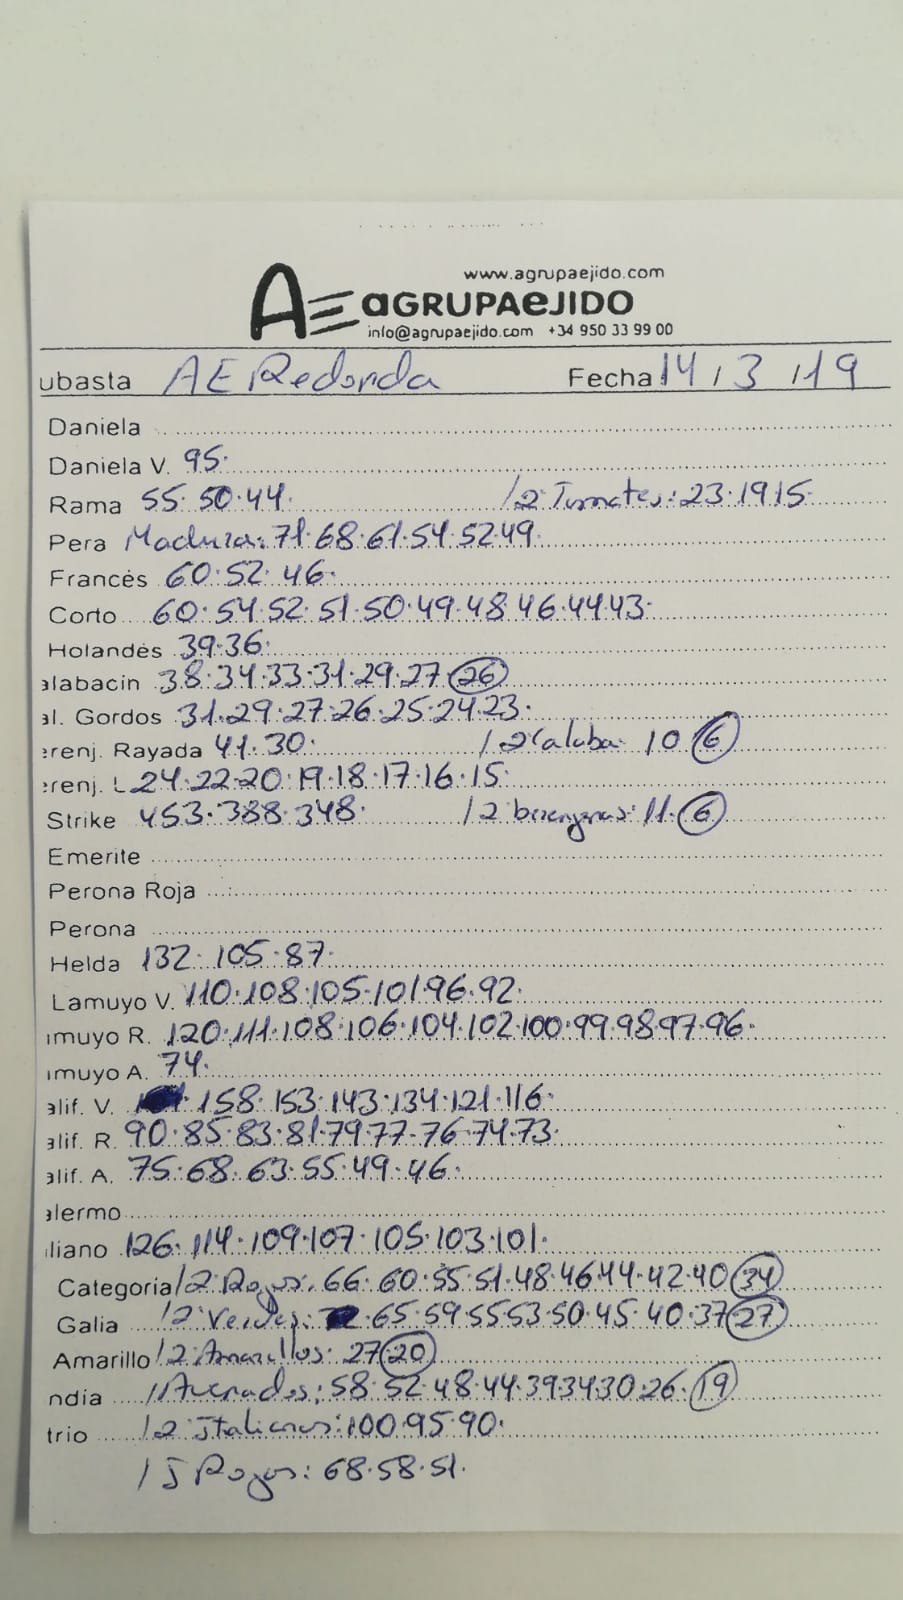 www.agrupaejido.com
AE aGRUPAeJIDO
info@agrupaejido.com +34 950 33 99 00
ubasta AE Redonda Fecha 14 / 3 / 19
Daniela
Daniela V. 95.
Rama 55. 50. 44. /2 Tomates: 23. 19 15.
Pera Madura: 71. 68. 61. 54. 52. 49.
Francés 60. 52. 46.
Corto 60. 54. 52. 51. 50. 49. 48. 46. 44. 43.
Holandés 39. 36.
alabacin 38. 34. 33. 31. 29. 27. 26
al. Gordos 31. 29. 27. 26. 25. 24. 23.
erenj. Rayada 41. 30. /2 Calaba. 10 6
erenj. L 24. 22. 20. 19. 18. 17. 16. 15.
Strike 453. 388. 348. /2 11. 6
Emerite
Perona Roja
Perona
Helda 132. 105. 87.
Lamuyo V. 110. 108. 105. 101. 96. 92.
muyo R. 120. 111. 108. 106. 104. 102. 100. 99. 98. 97. 96.
muyo A. 74.
alif. V. 158. 153. 143. 134. 121. 116.
alif. R. 90. 85. 83. 81. 79. 77. 76. 74. 73.
alif. A. 75. 68. 63. 55. 49. 46.
alermo
liano 126. 114. 109. 107. 105. 103. 101.
Categoria /2 Rojos: 66. 60. 55. 51. 48. 46 44. 42. 40 34
Galia /2 Verdes: 65. 59. 55 53. 50. 45. 40. 37 27
Amarillo /2 Amarillos: 27 20
ndia // Asurados: 58. 52. 48. 44. 39. 34 30. 26. 19
trio /2 Italianos: 100. 95. 90.
/ 5 Rojos: 68. 58. 51.